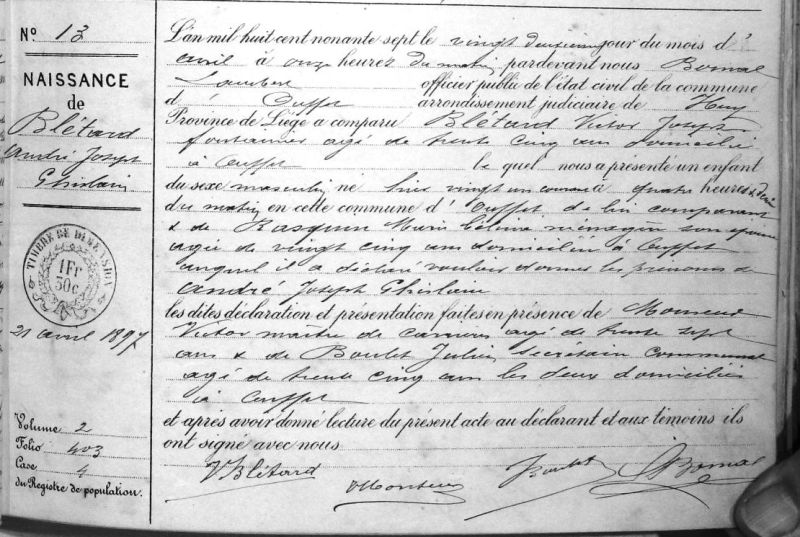 N° 13
NAISSANCE
de
Blétard
André Joseph
Ghislain
TIMBRE DE DIMENSION
1 Fr
50c.
21 avril 1897
Volume 2
Folio 403
Case 4
du Registre de population.
L'an mil huit cent nonante sept le vingt deuxième jour du mois d'
avril à onze heures du matin pardevant nous Bomal
Lambert officier public de l'état civil de la commune
d' Ouffet arrondissement judiciaire de Huy
Province de Liège a comparu Blétard Victor Joseph
fontainier agé de trente cinq ans domicilié
à Ouffet le quel nous a présenté un enfant
du sexe masculin né hier vingt un courant à quatre heures & demie
du matin en cette commune d' Ouffet de lui comparant
& de Rasquin Marie ménagère son épouse
agée de vingt cinq ans domiciliée à Ouffet
auquel il a déclaré vouloir donner les prénoms de
André Joseph Ghislain
les dites déclaration et présentation faites en présence de Monseur
Victor maître de carrières agé de trente sept
ans & de Boulet Julien secrétaire communal
agé de trente cinq ans les deux domiciliés
à Ouffet
et après avoir donné lecture du présent acte au déclarant et aux témoins ils
ont signé avec nous
V Blétard
VMonseur
JBoulet
LBomal